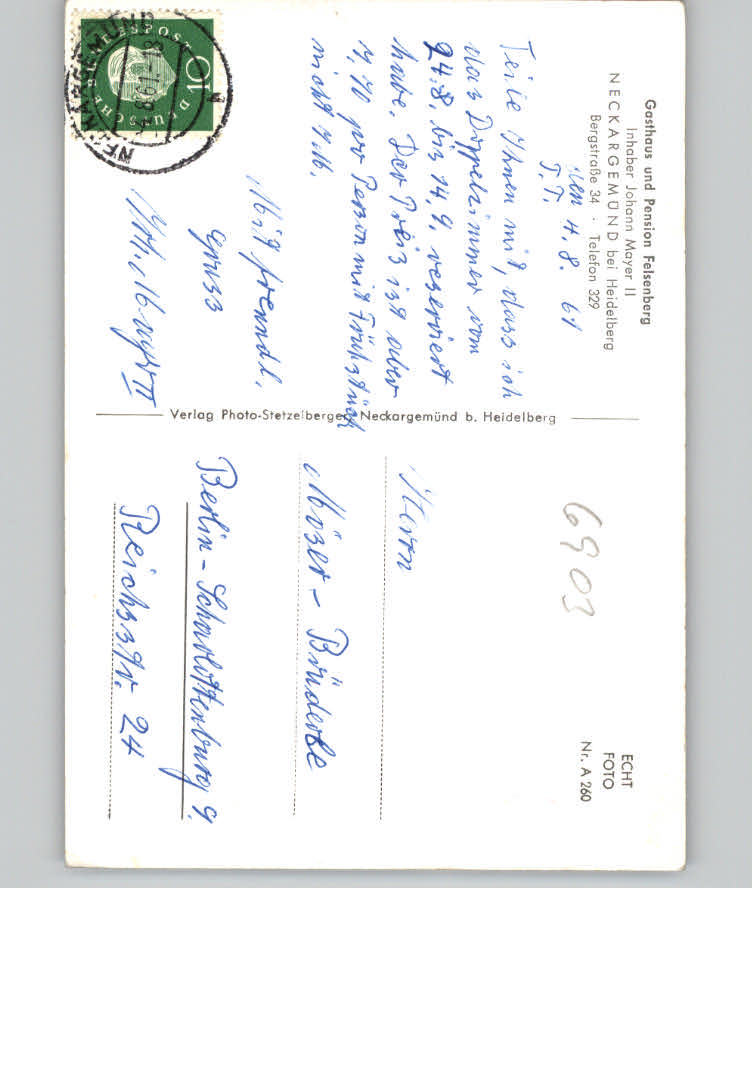 Gasthaus und Pension Felsenberg
Inhaber Johann Mayer II
NECKARGEMÜND bei Heidelberg
Bergstraße 34 · Telefon 329
den 4. 8. 61
T.T.
Teile Ihnen mit, dass ich
das Doppelzimmer vom
24.8. bis 14.9. reserviert
habe. Der Preis ist aber
7,70 pro Person mit Frühstück
nicht 7.16.
Mit freundl.
Gruss
II
DEUTSCHE BUNDESPOST
10
NECKARGEMÜND
Verlag Photo-Stetzelberger, Neckargemünd b. Heidelberg
ECHT
FOTO
Nr. A 260
6903
Herrn
Möser - Brüderle
Berlin - Scharlottenburg 9.
Reichsstr. 24